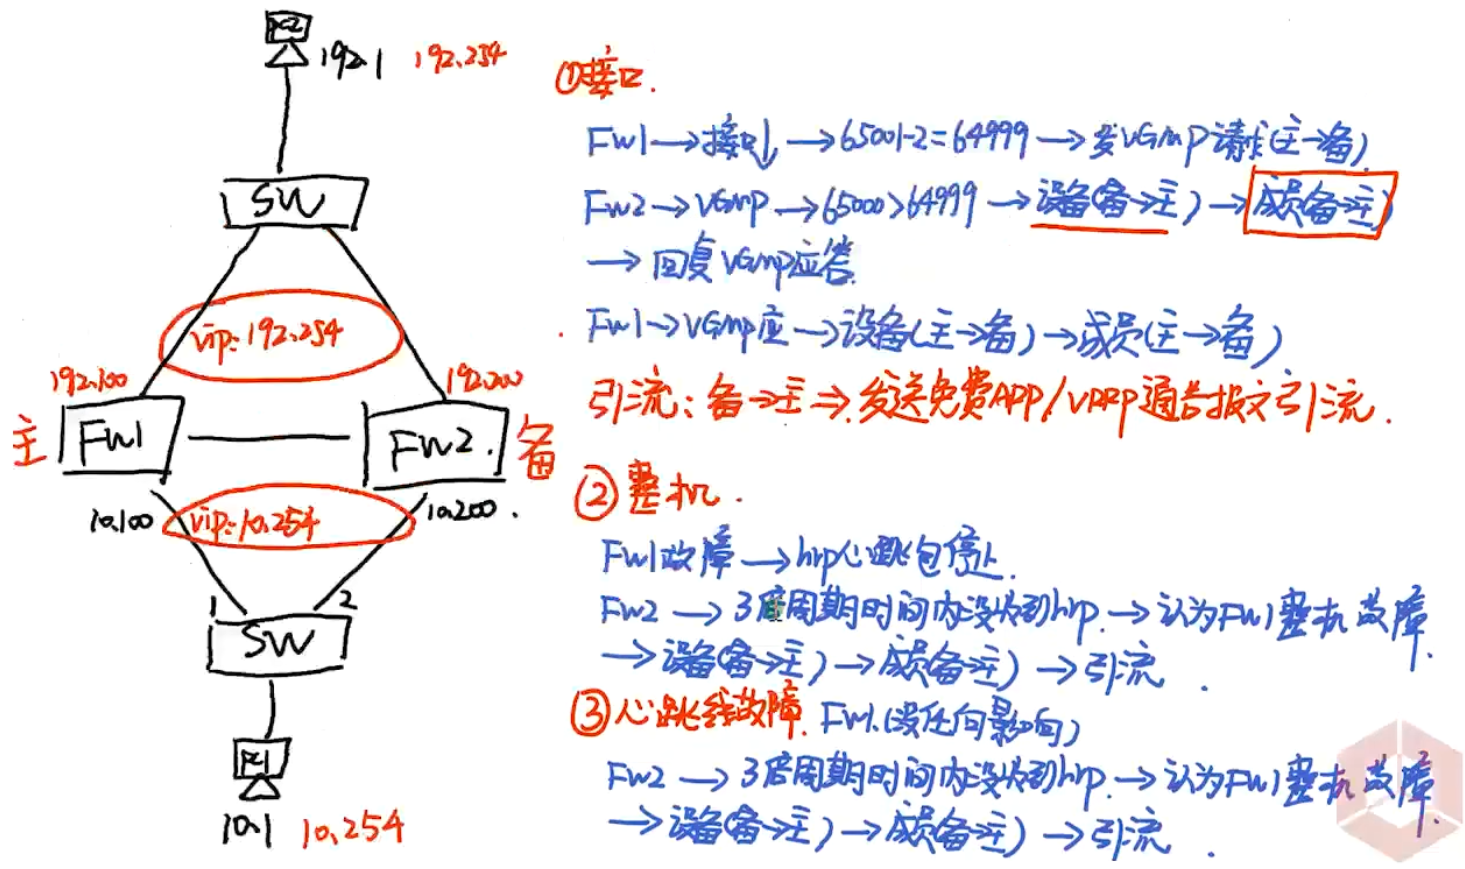 PC2
192.1 192.254
SW
vip:192.254
192.100
192.200
主 FW1
FW2. 备
10.100
vip:10.254
10.200.
1 2
SW
PC1
10.1 10.254
①接口.
FW1→接口↓→65001-2=64999→发VGMP请求(主→备)
FW2→VGMP→65000>64999→设备(备→主)→成员(备→主)
→回复VGMP应答.
FW1→VGMP应→设备(主→备)→成员(主→备)
引流:备→主⇒发送免费APP/VRRP通告报文引流.
②整机.
FW1故障→hrp心跳包停止.
FW2→3倍周期时间内没收到hrp.→认为FW1整机故障.
→设备(备→主)→成员(备→主)→引流.
③心跳线故障.FW1.(没任何影响)
FW2→3倍周期时间内没收到hrp.→认为FW1整机故障.
→设备(备→主)→成员(备→主)→引流.